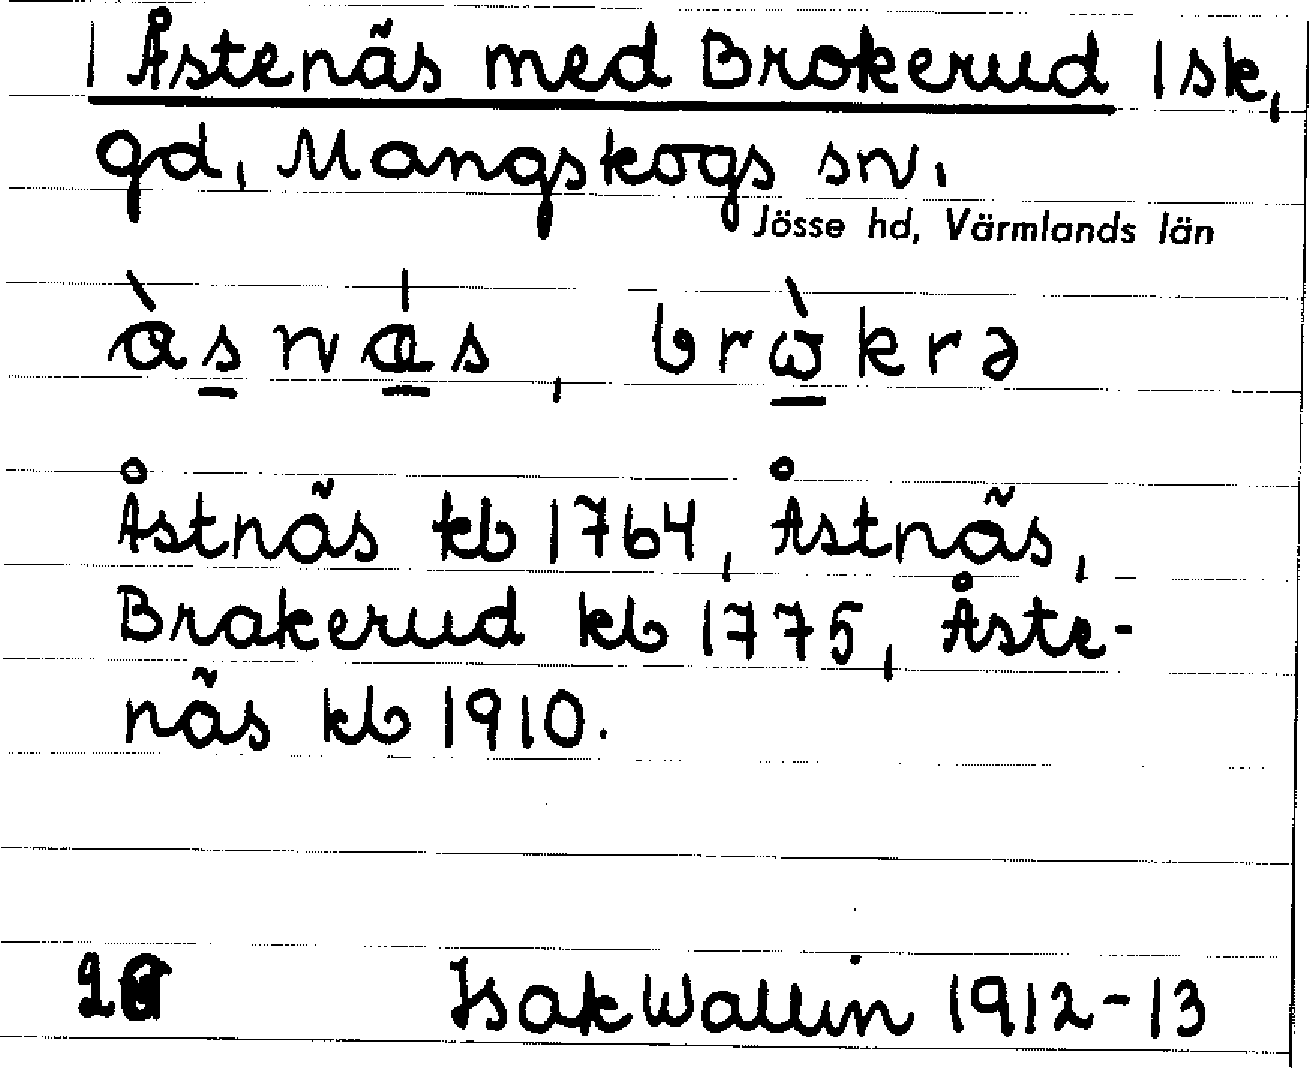 Åstenäs med Brokerud 1 sk,
gd, Mangskogs sn.
Jösse hd, Värmlands län
Åstnäs kb 1764, Åstnäs,
Brakerud kb 1775, Åste-
näs kb 1910.
Isak Wallin 1912-13